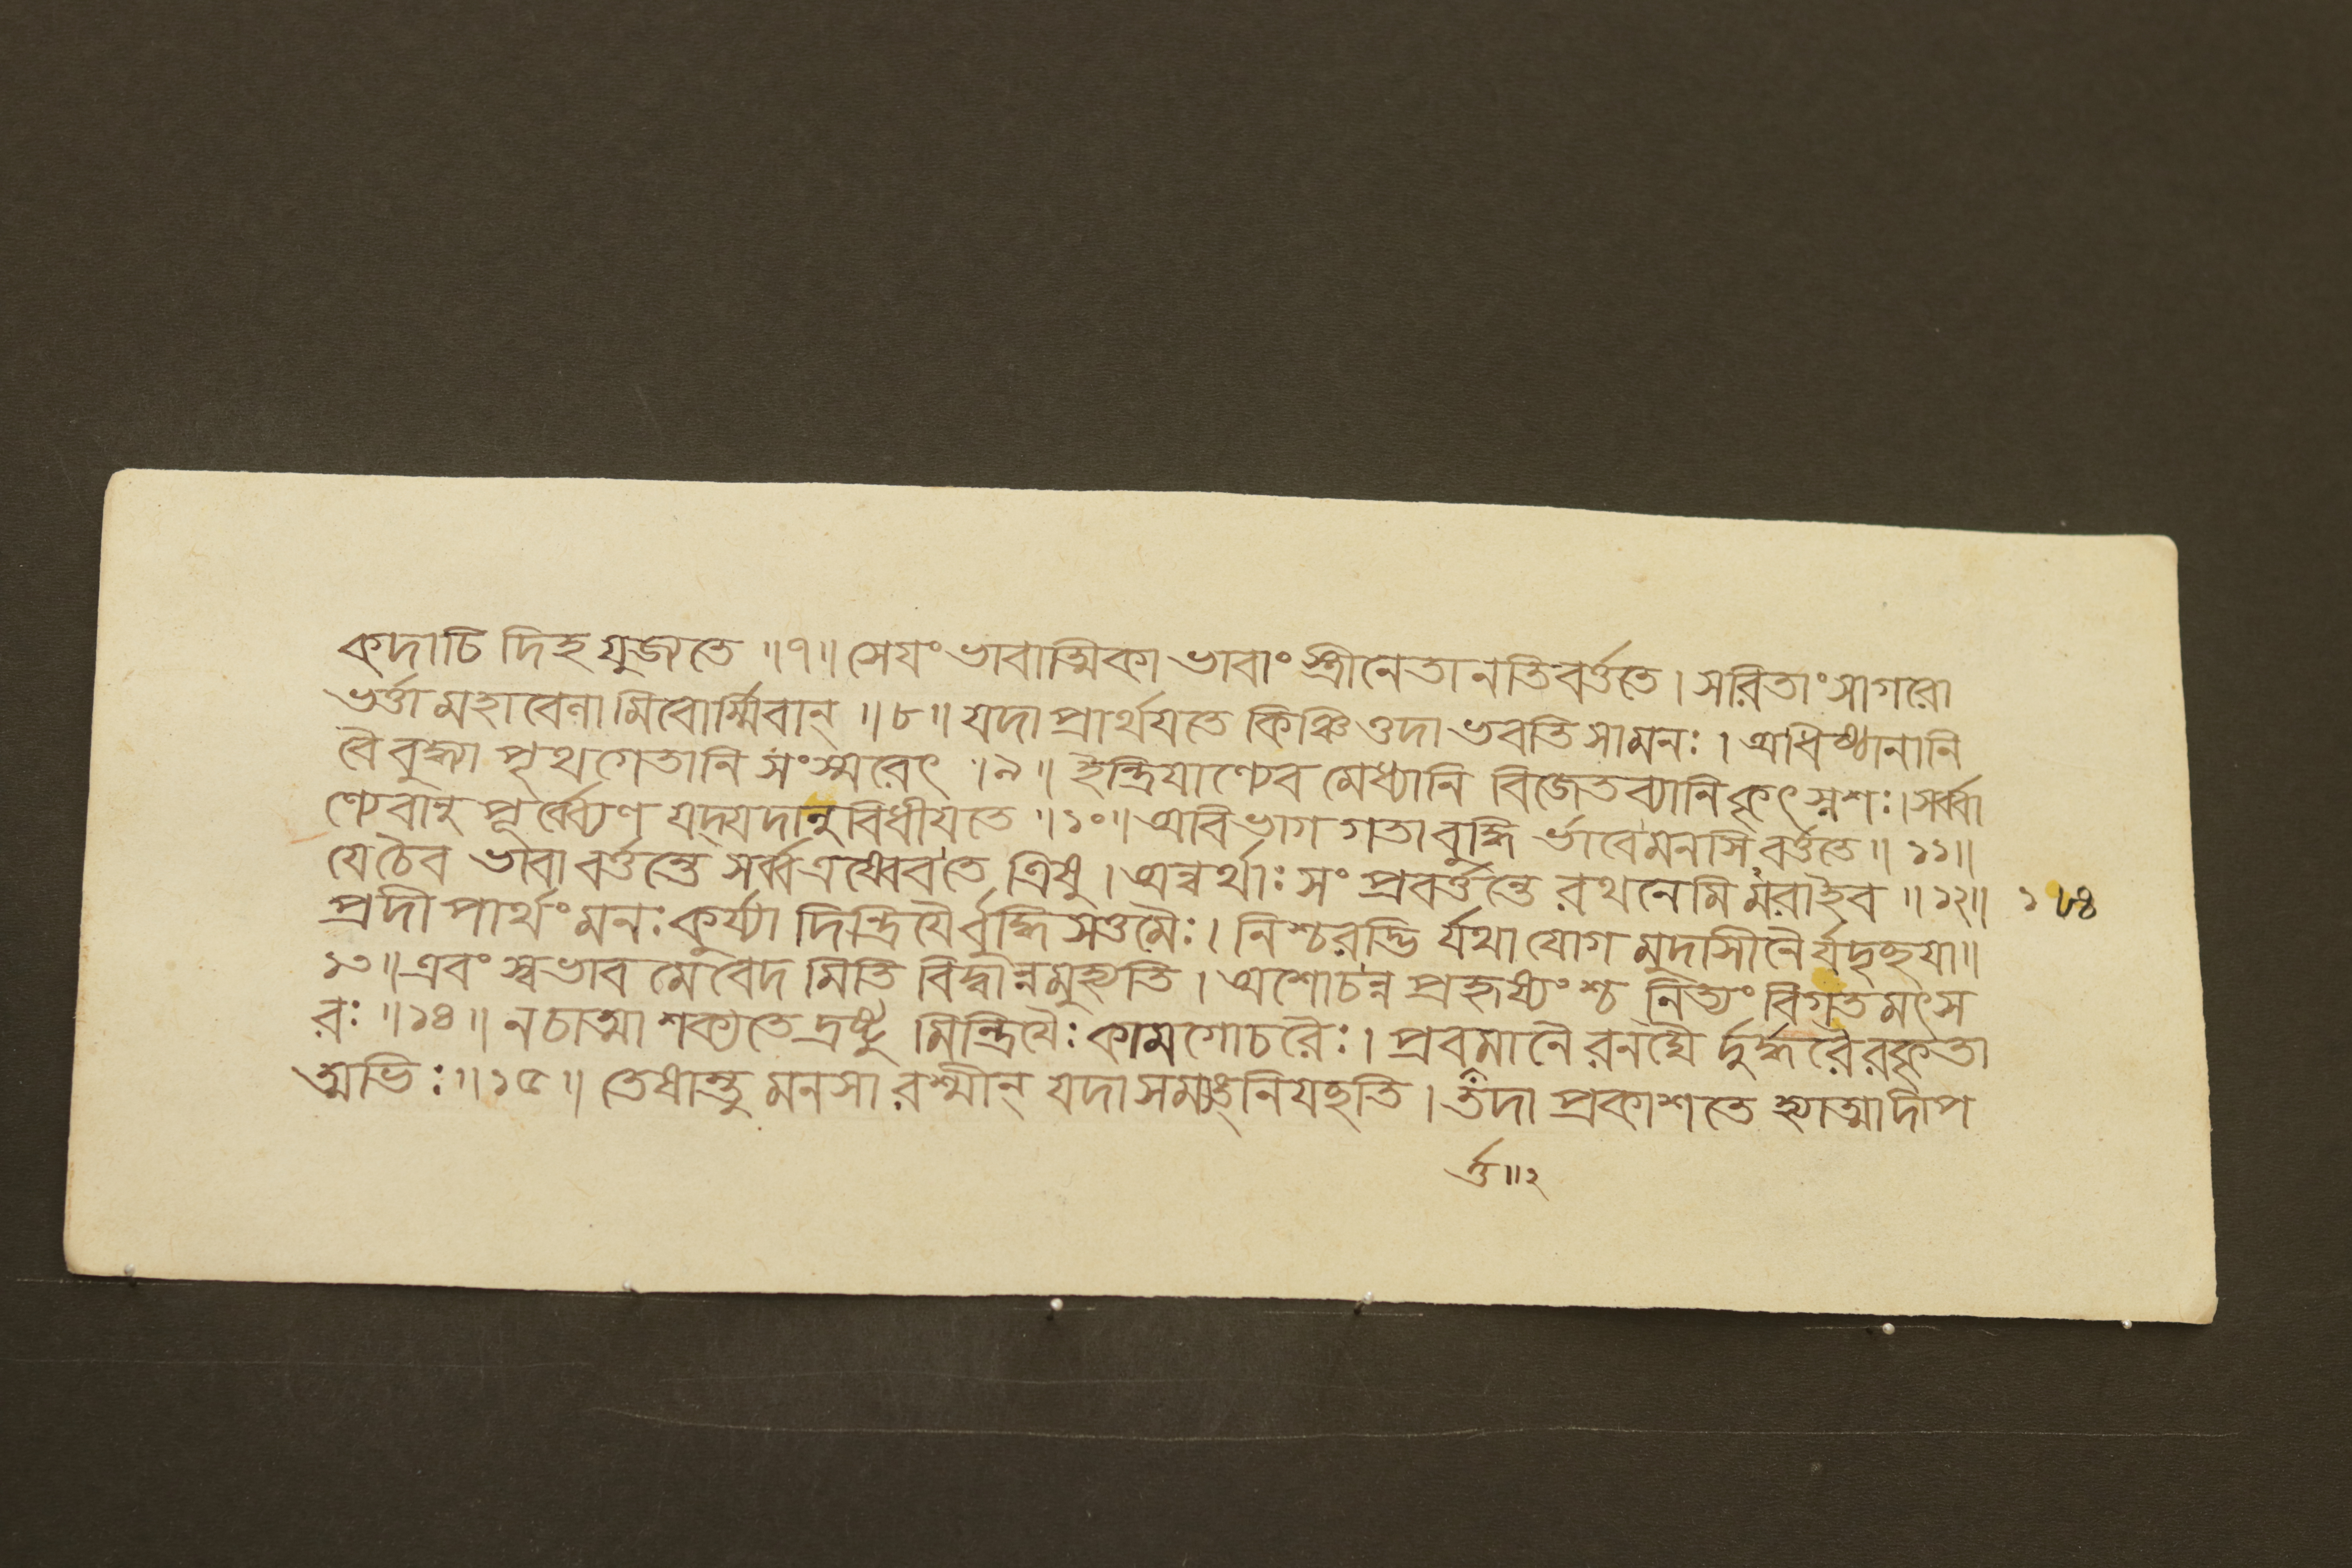 কদাচিদিহ যুজ্যতে ॥৭॥ সেযং ভাবাত্মিকা ভাবাং স্ত্রীনেতানতিবর্ত্ততে। সরিতাং সাগরো
ভর্ত্তা মহাবেনামিবোর্ম্মিবান্ ॥৮॥ যদা প্রার্থযতে কিঞ্চিত্তদা ভবতি সা মনঃ। অধিষ্ঠানানি
বৈ বুদ্ধ্যা পৃথগেতানি সংস্মরেৎ ॥৯॥ ইন্দ্রিযাণ্যেব মেধ্যানি বিজেতব্যানি কৃৎস্নশঃ। সর্ব্বা
ণ্যেবানুপূর্ব্ব্যেণ যদ্যদানুবিধীযতে ॥১০॥ অবিভাগগতা বুদ্ধির্ভাবে মনসি বর্ত্ততে॥ ১১॥
যে চৈব ভাবা বর্ত্তন্তে সর্ব্ব এষ্বেব তে ত্রিষু। অন্বর্থাঃ সংপ্রবর্ত্তন্তে রথনেমিমরা ইব ॥১২॥ ১৮৪
প্রদীপার্থং মনঃ কুর্য্যাদিন্দ্রিযৈর্বুদ্ধিসত্তমৈঃ। নিশ্চরদ্ভির্যথাযোগমুদাসীনৈর্যদৃচ্ছযা॥
১৩॥ এবং স্বভাবমেবেদমিতি বিদ্বান্ন মুহ্যতি। অশোচন্ন প্রহৃষ্যংশ্চ নিত্যং বিগতমৎস
রঃ ॥১৪॥ ন চাত্মা শক্যতে দ্রষ্টুমিন্দ্রিযৈঃ কামগোচরৈঃ। প্রবমানৈরনঘৈর্দুর্দ্ধরৈরকৃতা
ত্মভিঃ ॥১৫॥ তেষান্তু মনসা রশ্মীন্ যদা সম্যঙ্নিযচ্ছতি। তদা প্রকাশতে হ্যাত্মা দীপ
র্ত্ত॥২